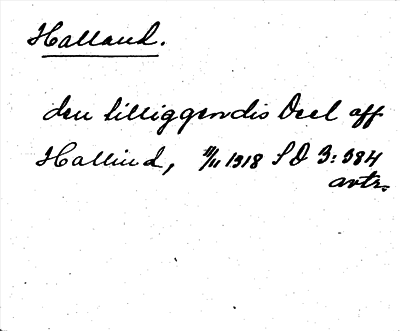 Halland.
den tilliggendis Deel aff
Hallind, 11/11 1318 SD 3:384
avtr.